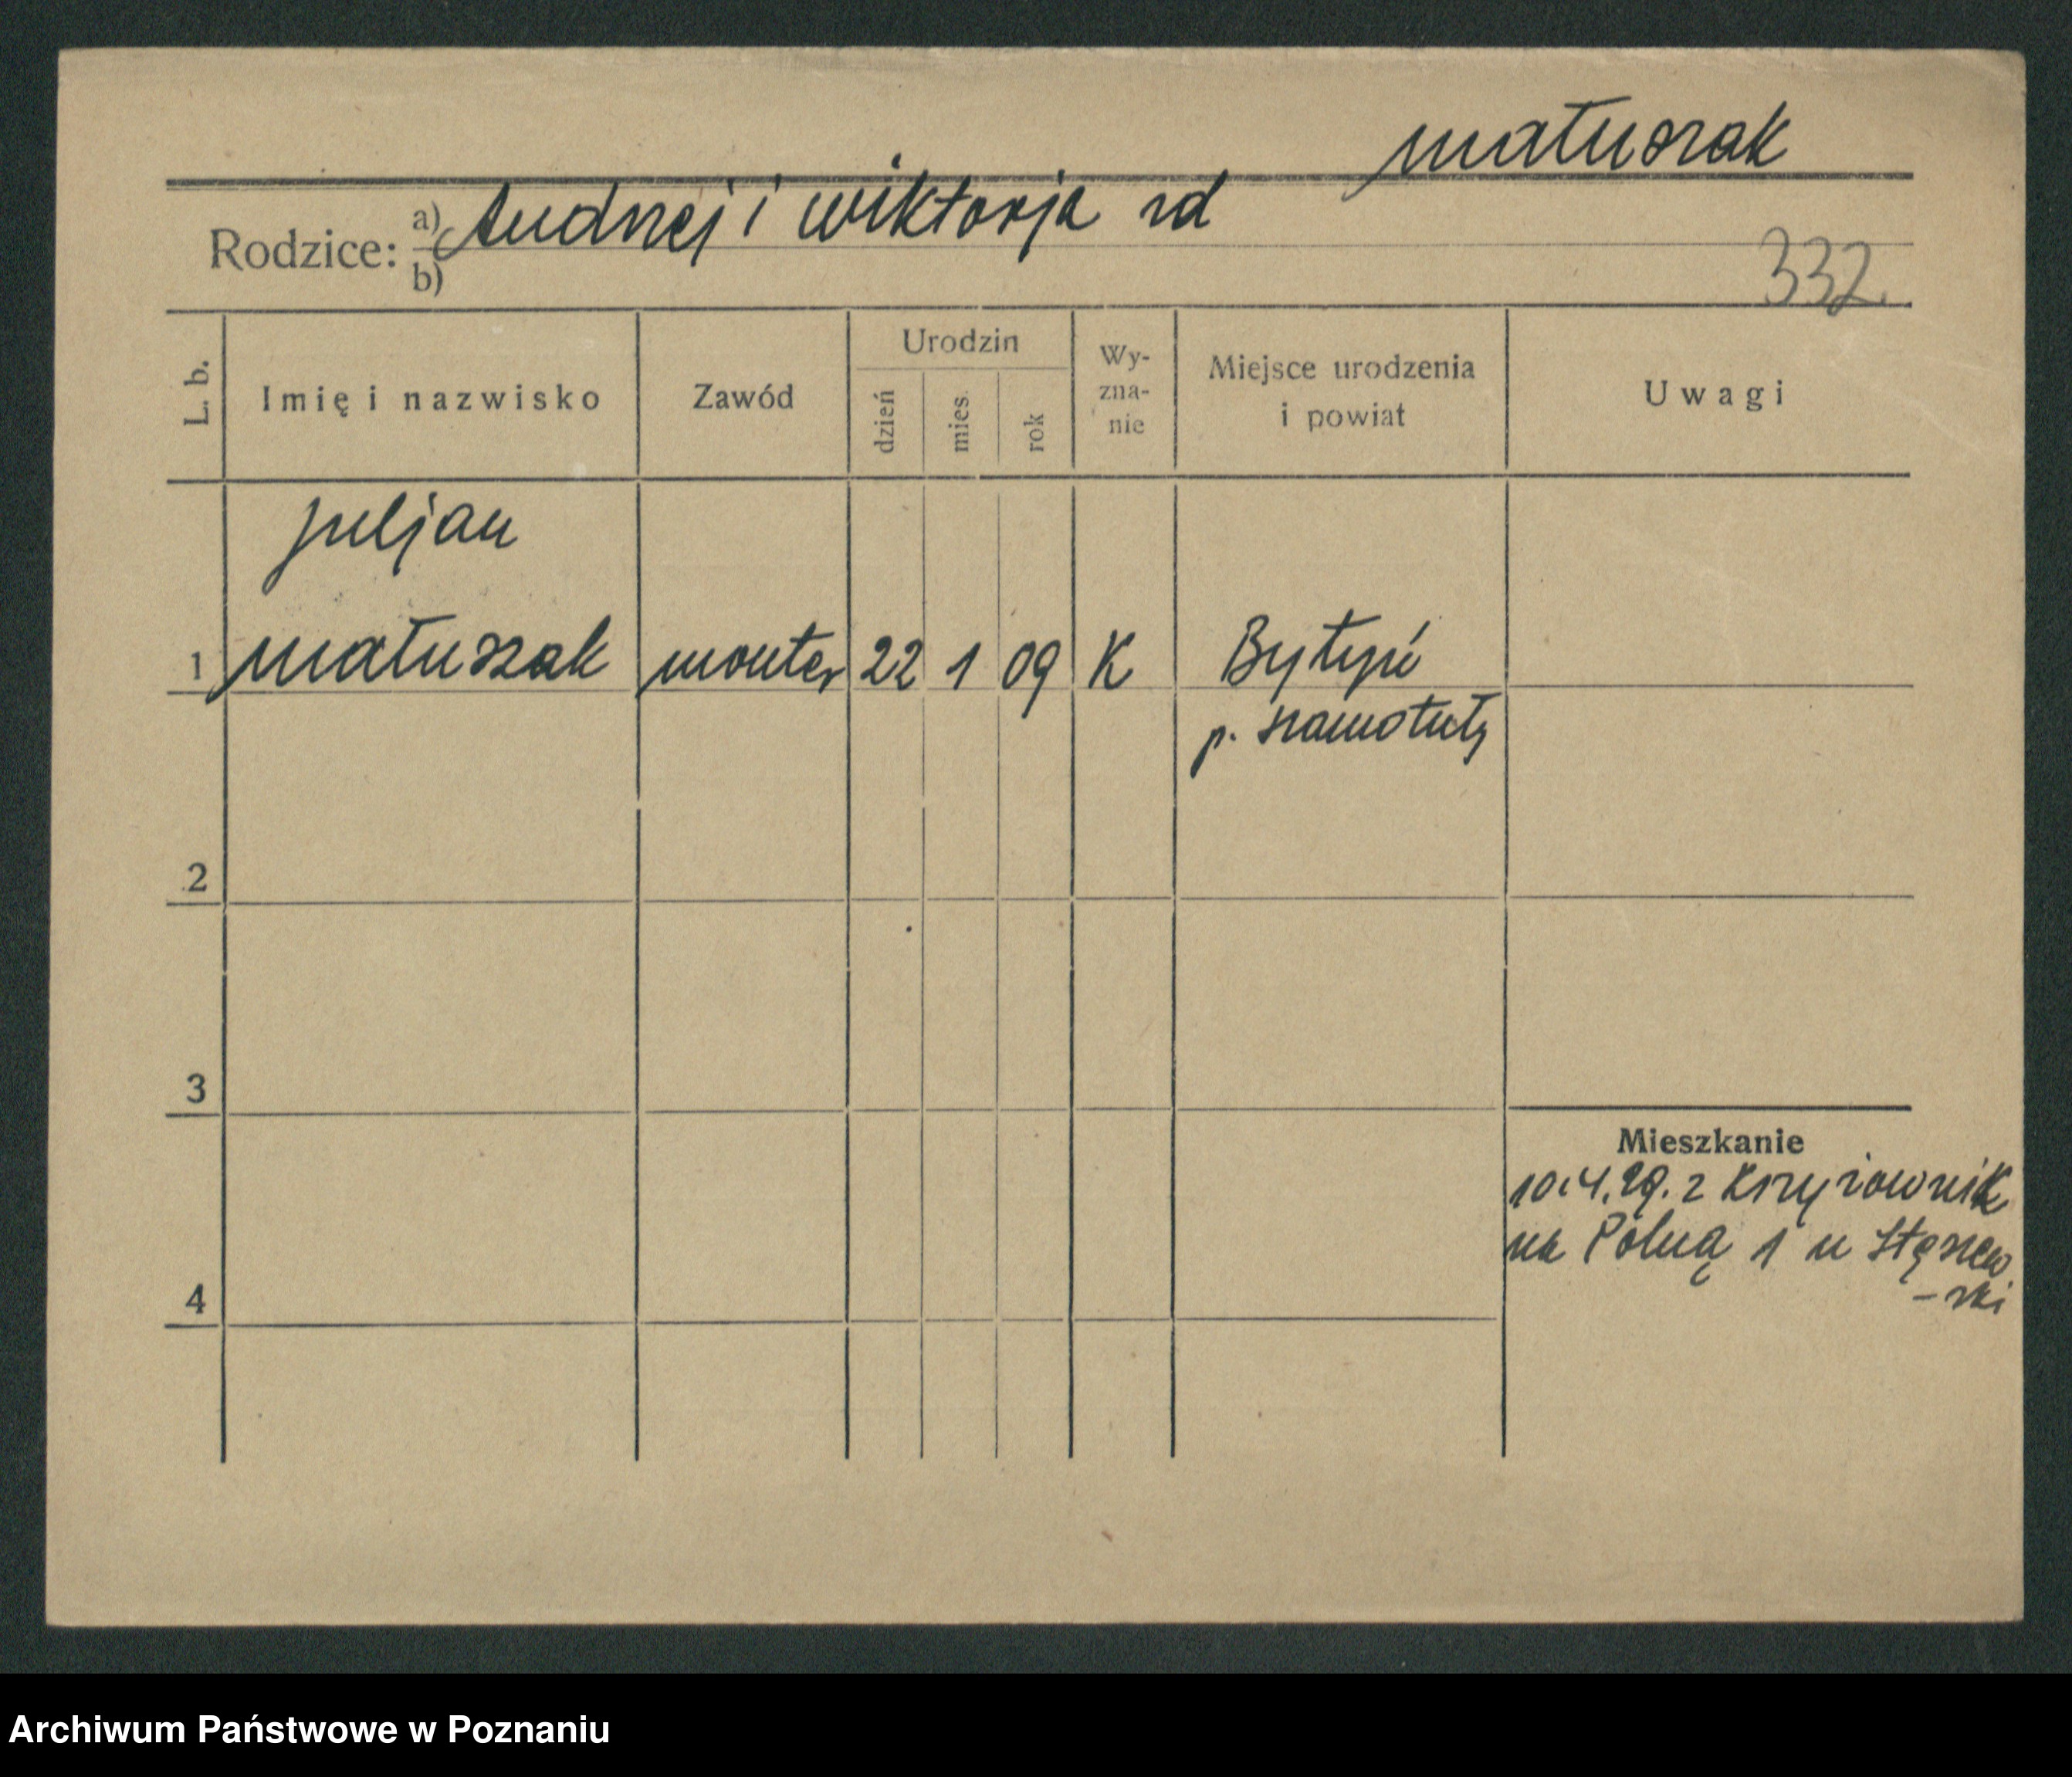 Matuszak
Rodzice: a) Andrzej i Wiktorja zd
b)
332.
L. b. Imię i nazwisko Zawód Urodzin dzień mies. rok Wy-zna-nie Miejsce urodzenia i powiat Uwagi
Juljan
1 Matuszak monter 22 1 09 K Bytyń
p. Szamotuły
2
3
Mieszkanie
10.4.29. z Krzyżownik
na Polną 1 u Stęszew
-ski
4
Archiwum Państwowe w Poznaniu